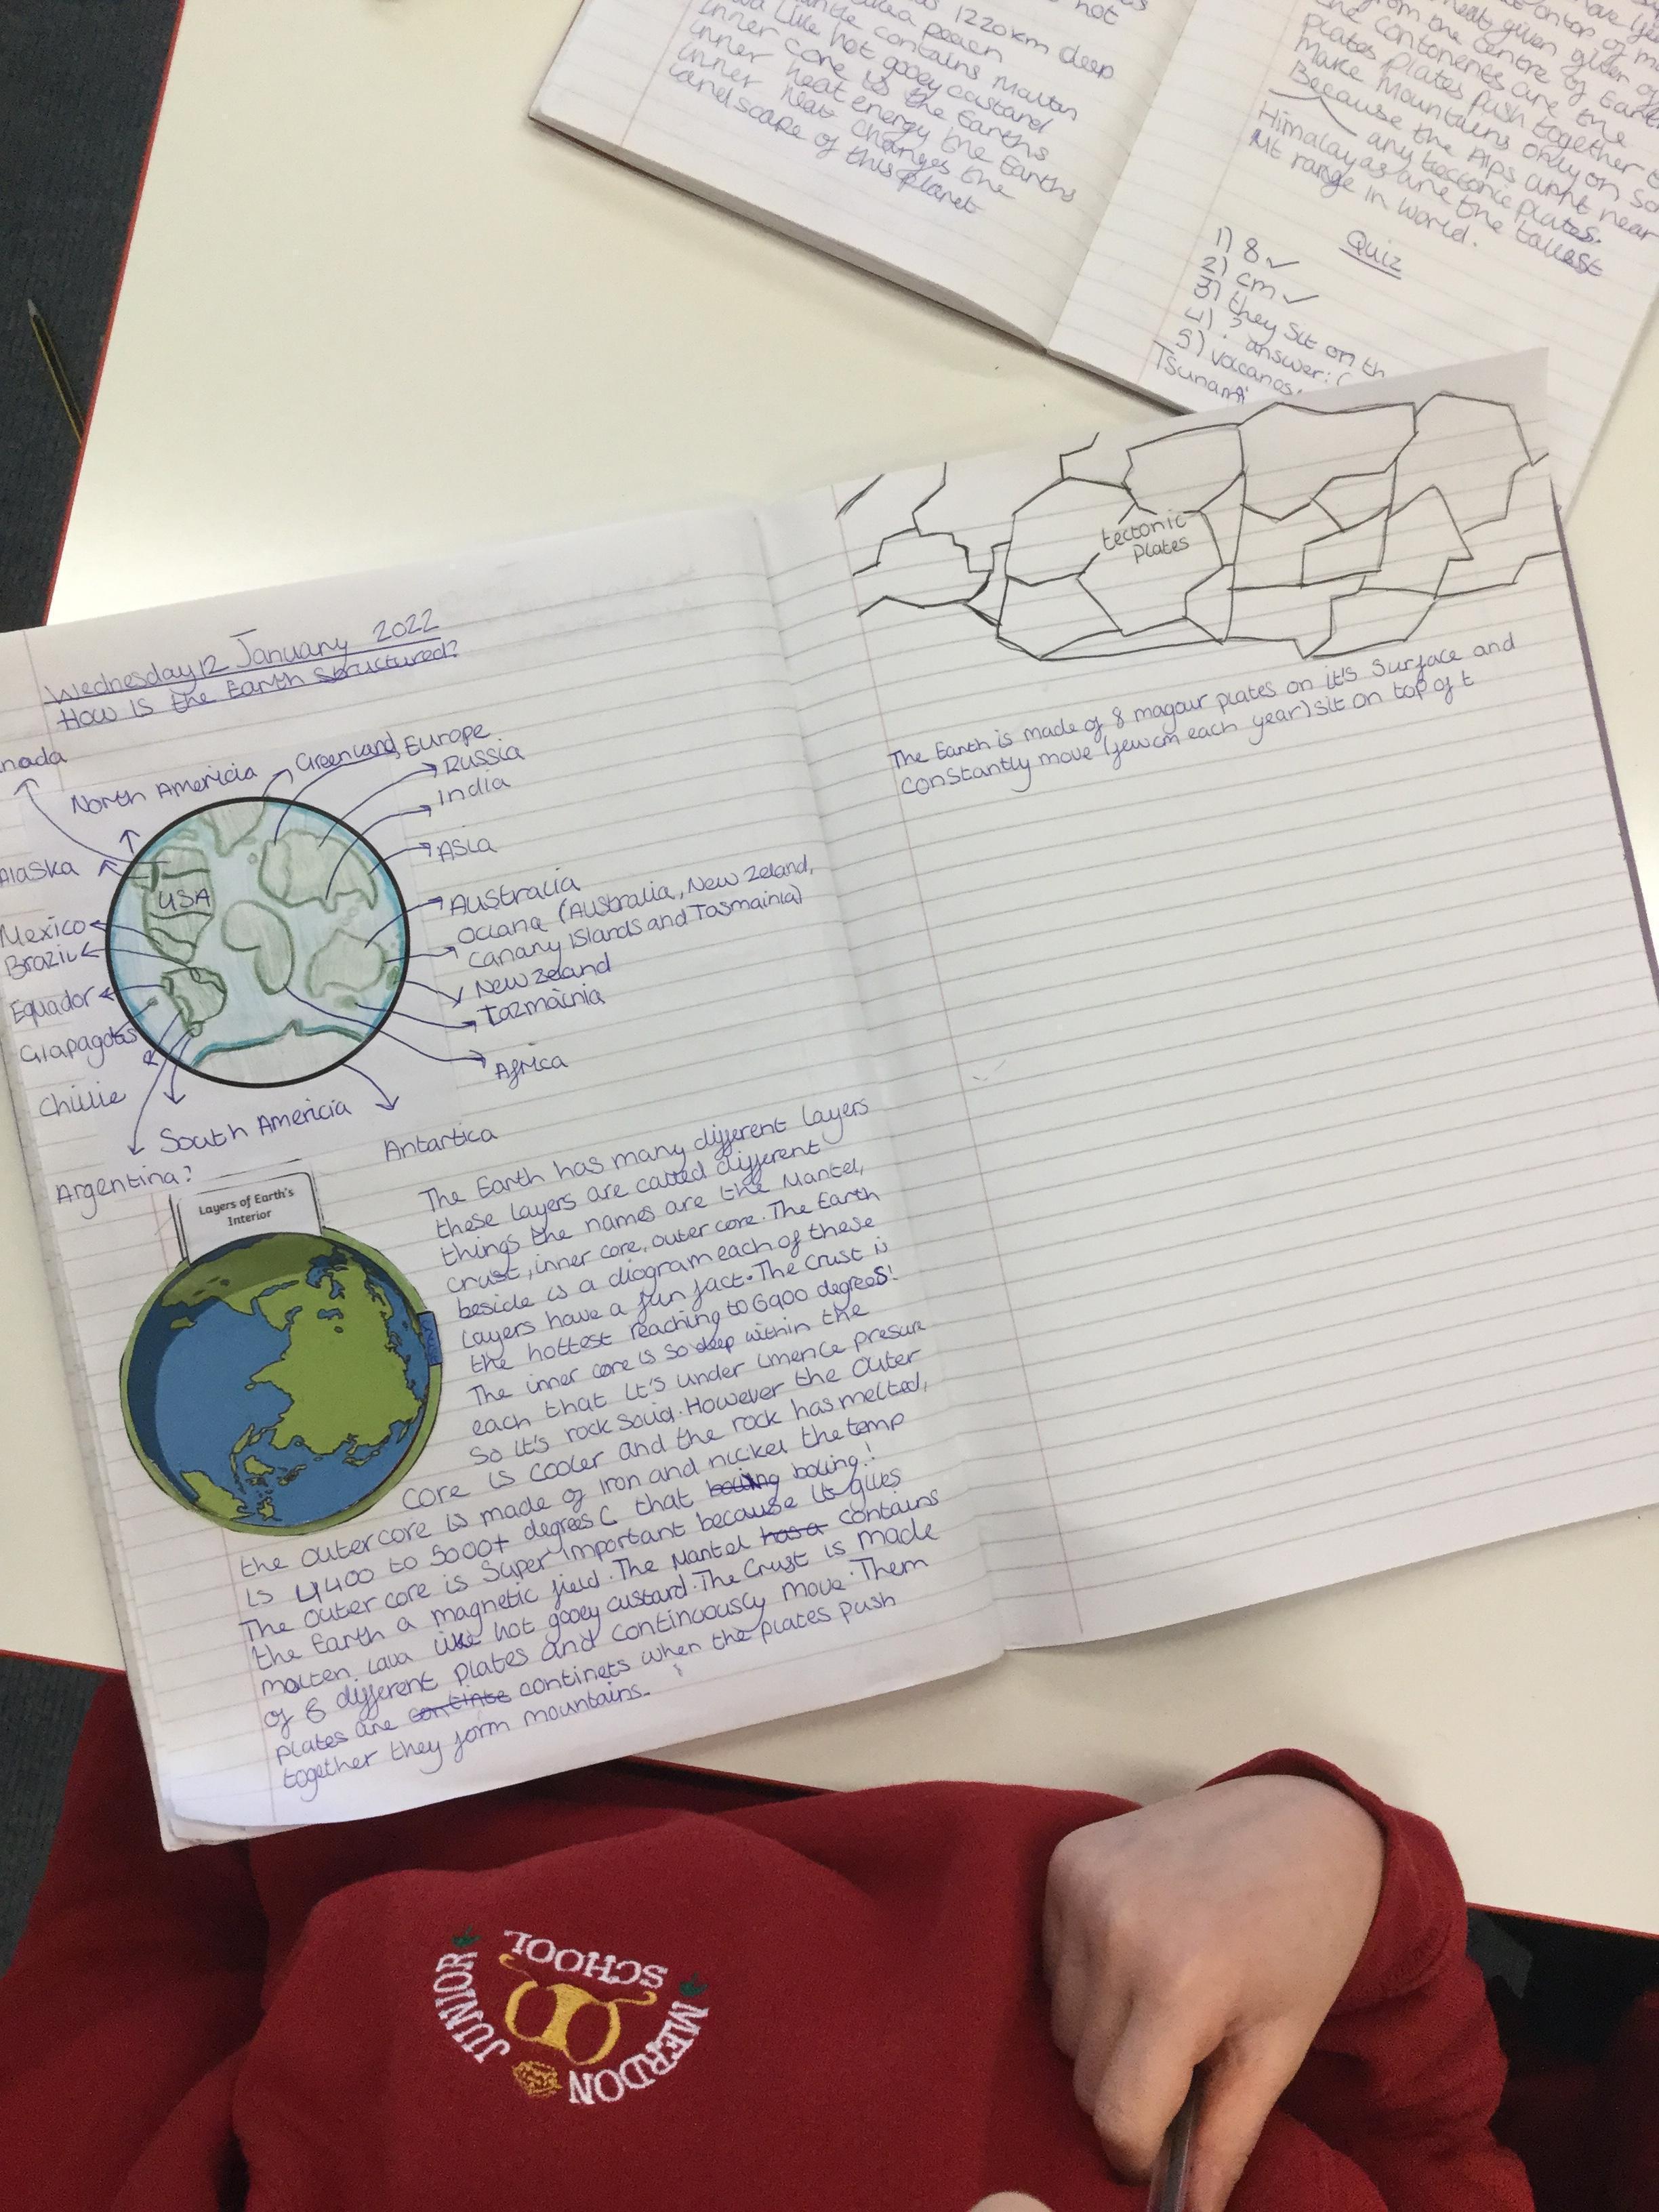 1220km deep
contains Maltn
like hot gooey custard
inner core is the Earths
inner heat energy the Earths
inner heat changes the
landscape of this planet
from the centre of Earth
the contonents are the
plates plates push together
make Mountains only on
Because the Alps arnt near
any tectonic plates.
Himalayas are the tallest
Mt range in world.
Quiz
1) 8 ✓
2) cm ✓
3) they sit on th
4) ? answer: (
5) volcanos.
Tsunami
Wednesday 12 January 2022
How is the Earth structured?
nada
North Americia
Greenland
Europe
Russia
India
Asia
Alaska
USA
Australia
Mexico
Ociana (Australia, New Zeland,
Canary islands and Tasmainia)
Brazil
New Zeland
Equador
Tazmainia
Glapagotas
Africa
Chillie
South Americia
Antartica
Argentina?
Layers of Earth's
Interior
Crust
The Earth has many different layers
these layers are called different
things the names are the Mantel,
crust, inner core, outer core. The Earth
beside is a diogram each of these
layers have a fun fact. The crust is
the hottest reaching to 6900 degrees!
The inner core is so deep within the
each that it's under imence presure
so it's rock solid. However the outer
core is cooler and the rock has melted,
the outer core is made of iron and nickel the temp
is 4400 to 5000+ degrees C that boiling boling!
The outer core is super important because it gives
the Earth a magnetic field. The Mantel has a contains
molten lava like hot gooey custard. The Crust is made
of 8 different plates and continuously move. Them
plates are continse continets when the plates push
together they form mountains.
tectonic
plates
The Earth is made of 8 magour plates on it's surface and
constantly move (few cm each year) sit on top of t
MERDON
JUNIOR
SCHOOL